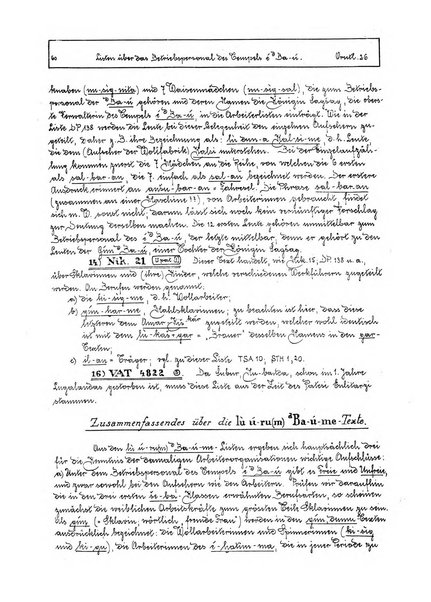 60 Listen über das Betriebspersonal des Tempels é ᵈBa-ú. Orntl. 26
knaben (nu-sig-nita) und 7 Waisenmädchen (nu-sig-sal), die zum Betriebs-
personal der ᵈBa-ú gehören und deren Namen die Königin Šagšag, die ober-
ste Verwalterin des Tempels é ᵈBa-ú, in die Arbeiterlisten einträgt. Wie in der
Liste DP, 138 werden die Leute bei dieser Gelegenheit den einzelnen Aufsehern zu-
geteilt, daher z. B. ihre Bezeichnung als: lù dam-a Mal-si-me d. h. Leute
dem (Aufseher der Wollfabrik) Malsi unterstehen. Bei der Einzelaufzäh-
lung kommen zuerst die 7 Mädchen an die Reihe, von welchen die 6 ersten
als sal-bar-an, die 7. einfach als sal bezeichnet werden. Der erstere
Ausdruck erinnert an anšu-bar-an = Fahresel. Die Phrase sal-bar-an
(zusammen an einer Maschine!?), von Arbeiterinnen gebraucht, findet
sich m. W. sonst nicht, darum lässt sich noch kein vernünftiger Vorschlag
zur Deutung derselben machen. Die 12 ersten Leute gehören unmittelbar zum
Betriebspersonal des é ᵈBa-ú, der letzte mittelbar, denn er gehört zu den
Leuten der Gim ᵈBa-ú, einer Tochter der Königin Šagšag.
14) Nik. 21 Dieser Text handelt, wie Nik. 15, DP. 138 u. a.,
über Sklavinnen und (ihre) Kinder, welche verschiedenen Werkführern zugeteilt
werden. An Berufen werden genannt:
a) die ki-sig-me, d. h. Wollarbeiter;
b) gim-har-me, Mahlsklavinnen; zu beachten ist hier, dass diese
letztern dem Amar-ki zugeteilt werden, welcher wohl identisch
mit dem lù-kas+gar = „Brauer" desselben Namen in den gar-
Texten;
c) íl-an = Träger; vgl. zu dieser Liste TSA 10; STH 1, 20.
16) VAT 4822 Da Subur, Nu-banda, schon im 1. Jahre
Lugalandas gestorben ist, muss diese Liste aus der Zeit des Patesi Enlitarzi
stammen.
Zusammenfassendes über die lù ú-ru(m) ᵈBa-ú-me-Texte.
Aus den lù ú-ru(m) ᵈBa-ú-me-Listen ergeben sich hauptsächlich drei
für die Kenntnis der damaligen Arbeiterorganisationen wichtige Aufschlüsse:
a) Unter dem Betriebspersonal des Tempels é ᵈBa-ú gibt es Freie und Unfreie,
und zwar sowohl bei den Aufsehern wie den Arbeitern. Prüfen wir daraufhin
die in den drei ersten še-ba-Klassen erwähnten Berufsarten, so scheinen
zumächst die weiblichen Arbeitskräfte zum grössten Teile Sklavinnen zu sein.
Als gim (= Sklavin, wörtlich „fremde Frau") werden in den gim-dumu-Texten
ausdrücklich bezeichnet: die Wollarbeiterinnen und Spinnerinnen (ki-sig
und ki-gu), die Arbeiterinnen des é-hatim-ma, die in jene Periode zu